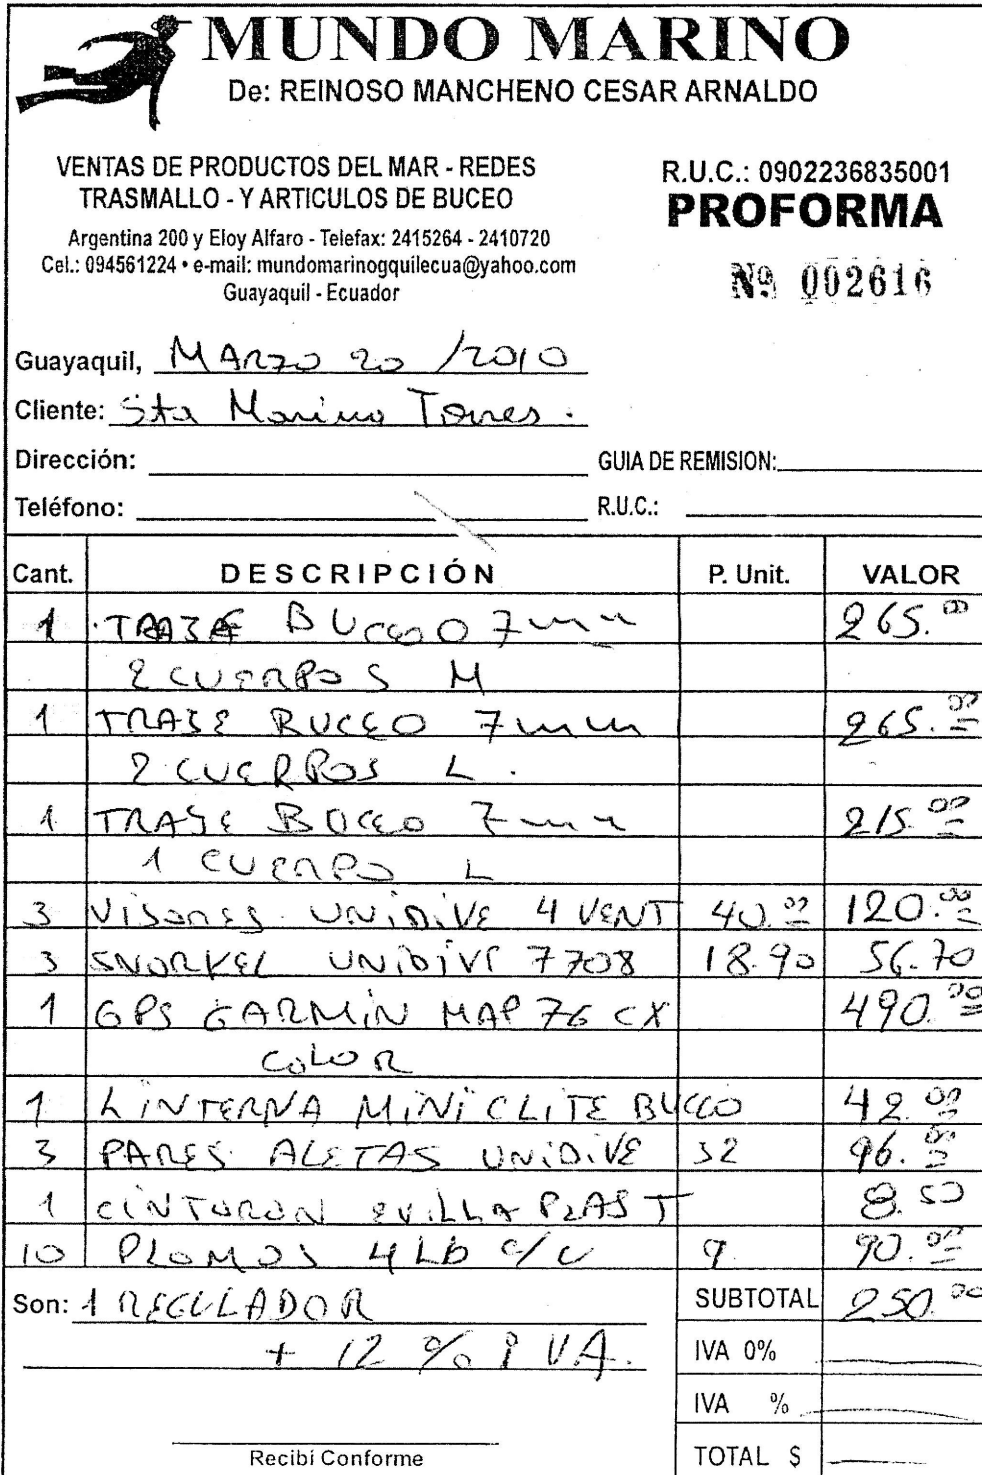 MUNDO MARINO
De: REINOSO MANCHENO CESAR ARNALDO
VENTAS DE PRODUCTOS DEL MAR - REDES
TRASMALLO - Y ARTICULOS DE BUCEO
Argentina 200 y Eloy Alfaro - Telefax: 2415264 - 2410720
Cel.: 094561224 • e-mail: mundomarinogquilecua@yahoo.com
Guayaquil - Ecuador
R.U.C.: 0902236835001
PROFORMA
Nº 002616
Guayaquil, MARZO 20 /2010
Cliente: Sta Marina Torres.
Dirección: GUIA DE REMISION:
Teléfono: R.U.C.:
Cant. DESCRIPCIÓN P. Unit. VALOR
1 TRAJE BUCEO 7mm 265.00
2 CUERPOS M
1 TRAJE BUCEO 7mm 265.00
2 CUERPOS L.
1 TRAJE BUCEO 7mm 215.00
1 CUERPO L
3 VISORES UNIDIVE 4 VENT 40.00 120.00
3 SNORKEL UNIDIVE 7708 18.90 56.70
1 GPS GARMIN MAP 76 CX 490.00
COLOR
1 LINTERNA MINI CLITE BUCEO 42.00
3 PARES ALETAS UNIDIVE 32 96.00
1 CINTURON EVILLA PLAST 8.50
10 PLOMOS 4 Lb c/u 9. 90.00
Son: 1 REGULADOR SUBTOTAL 250.00
+ 12 % IVA. IVA 0%
IVA %
Recibí Conforme TOTAL $